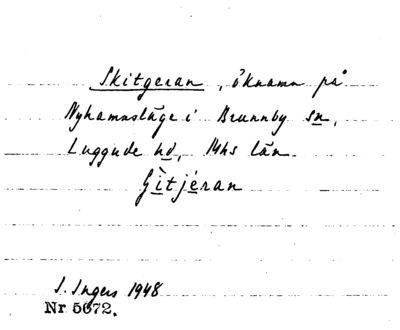 Skitgeran, öknamn på
Nyhamnsläge i Brunnby sn,
Luggude hd, Mhs län.
Gìtjéran
I. Ingers 1948
Nr 5672.